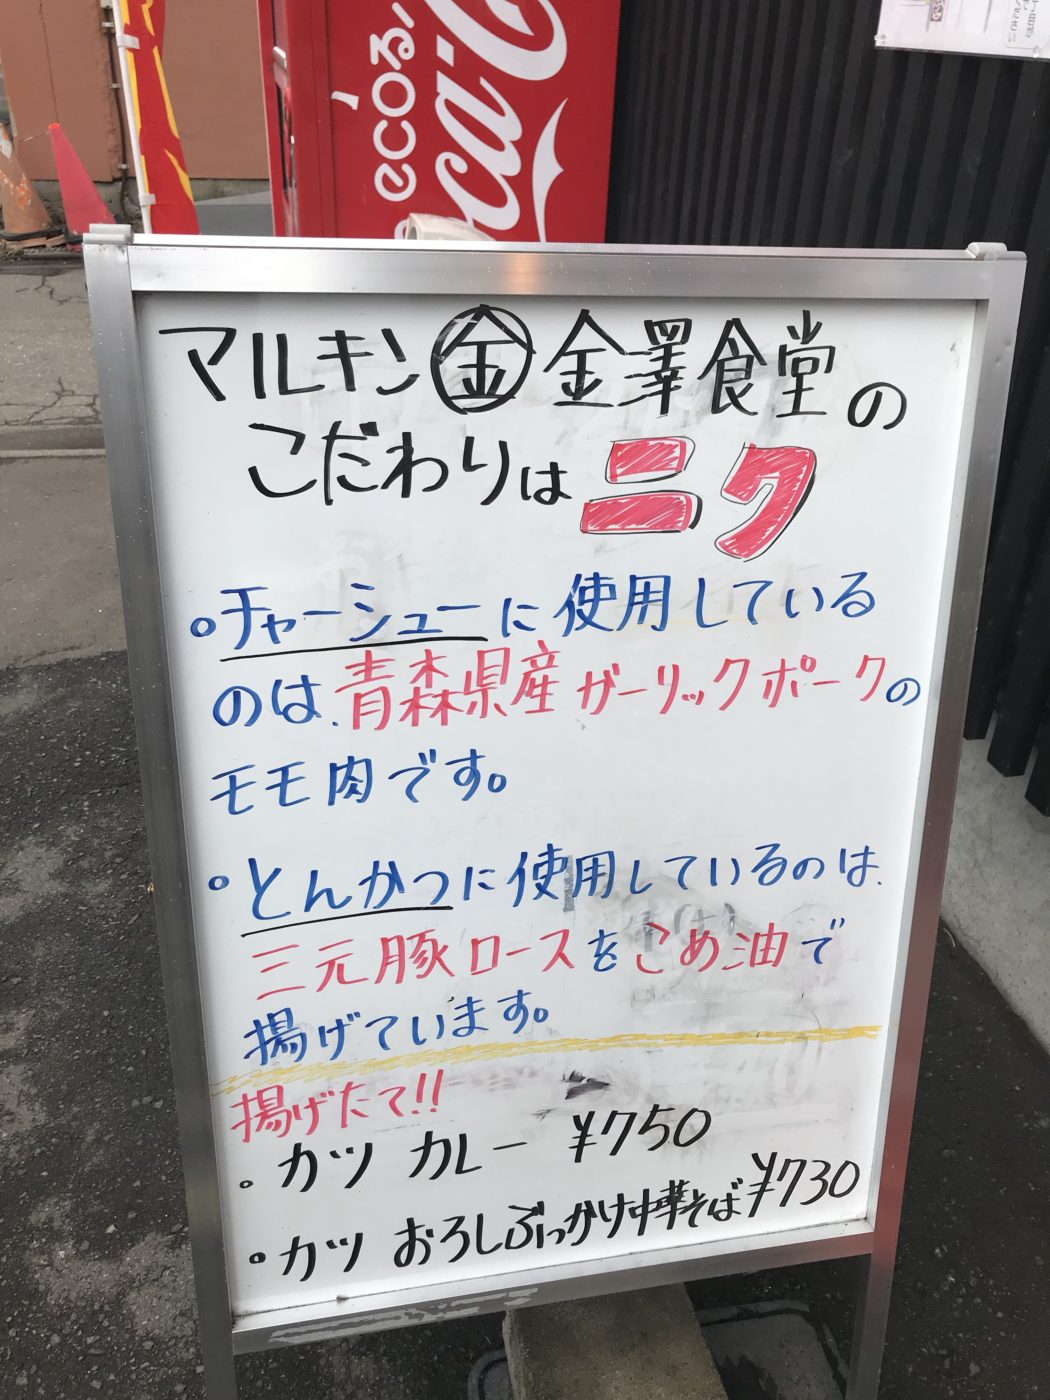 ecoる
マルキン㊎金澤食堂の
こだわりはニク
。チャーシューに使用している
のは、青森県産ガーリックポークの
モモ肉です。
。とんかつに使用しているのは、
三元豚ロースをこめ油で
揚げています。
揚げたて!!
。カツカレー ¥750
。カツ おろしぶっかけ中華そば ¥730